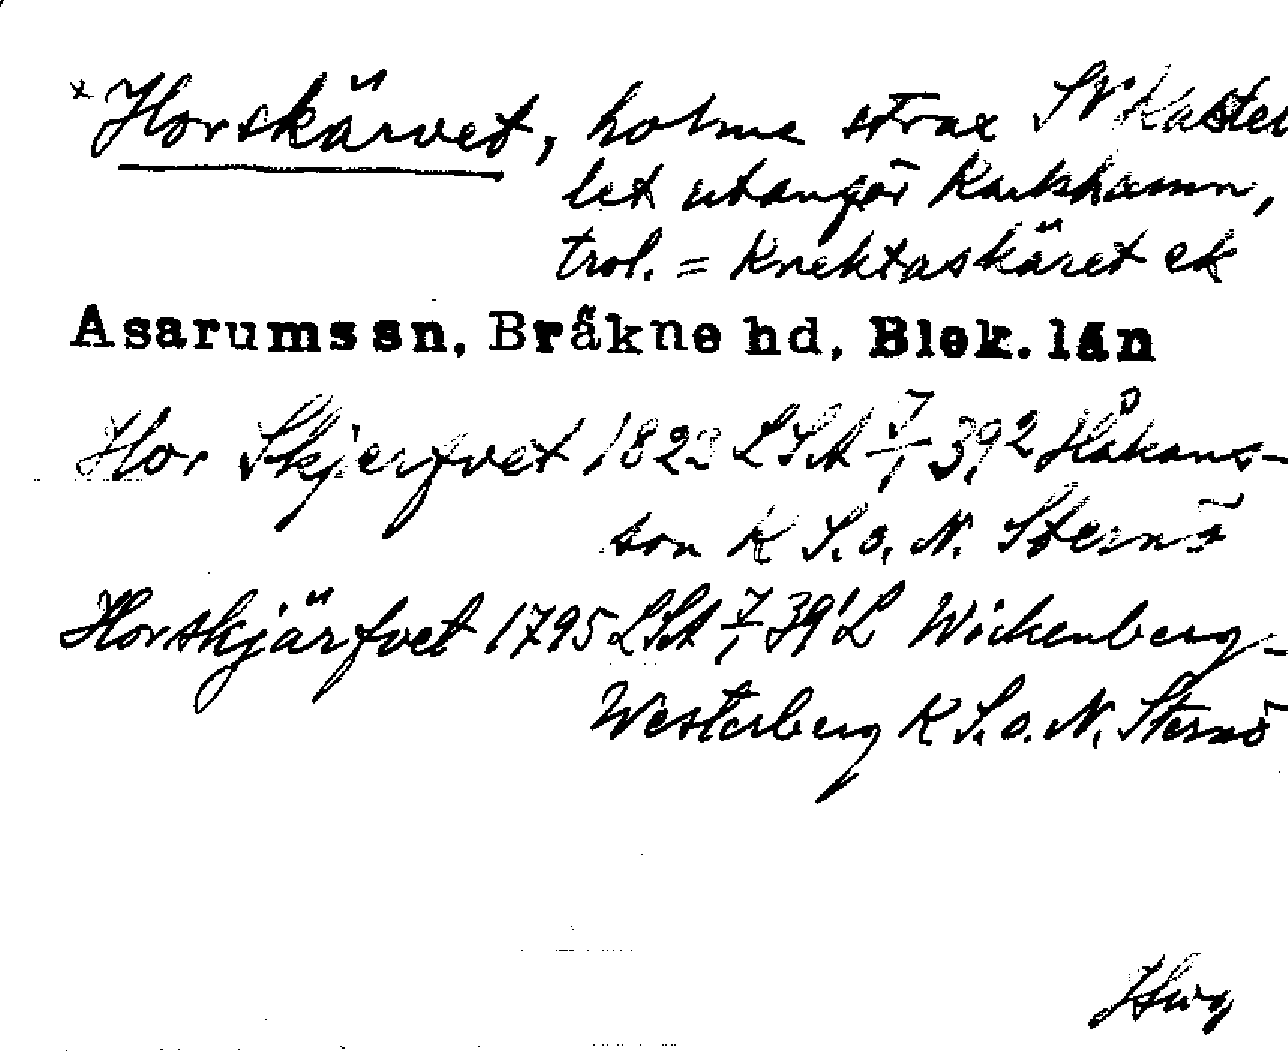 x Horskärvet, holme strax SV Kastel
let utanför Karlshamn,
trol. = Knektaskäret ek
Asarums sn, Bräkne hd, Blek. län
Hor Skjerfvet 1823 LSA 7/1 39,2 Håkans-
son K S.o.N. Sternö
Horskjärfvet 1795 LSA 7/1 39'L Wickenberg-
Westerberg K S.o.N. Sternö